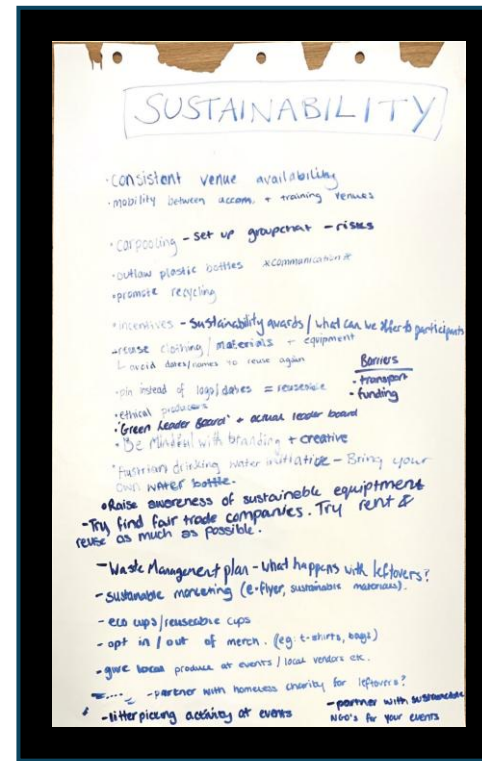 SUSTAINABILITY
·consistent venue availability
·mobility between accom. + training venues
·carpooling - set up groupchat - risks
·outlaw plastic bottles *communication*
·promote recycling
·incentives - sustainability awards / what can we offer to participants
-reuse clothing / materials + equipment
↳ avoid dates/names to reuse again
Barriers
·transport
·funding
·pin instead of logo/dates = reuseable
·ethical producers
·"Green Leader Board" + actual leader board
·Be Mindful with branding + creative
·Austrian drinking water initiative - Bring your
own water bottle.
·Raise awareness of sustainable equiptment
-Try find fair trade companies. Try rent &
reuse as much as possible.
-Waste Management plan - what happens with leftovers?
-sustainable marketing (e-flyer, sustainable materials).
-eco cups/reuseable cups
-opt in / out of merch. (eg: t-shirts, bags)
-give local produce at events / local vendors etc.
-partner with homeless charity for leftovers?
-litterpicking activity at events
-partner with sustainable
NGO's for your events